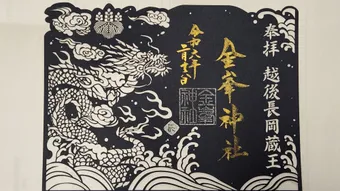 奉拝
越後長岡蔵王
金峯神社
令和六年
金峯
神社